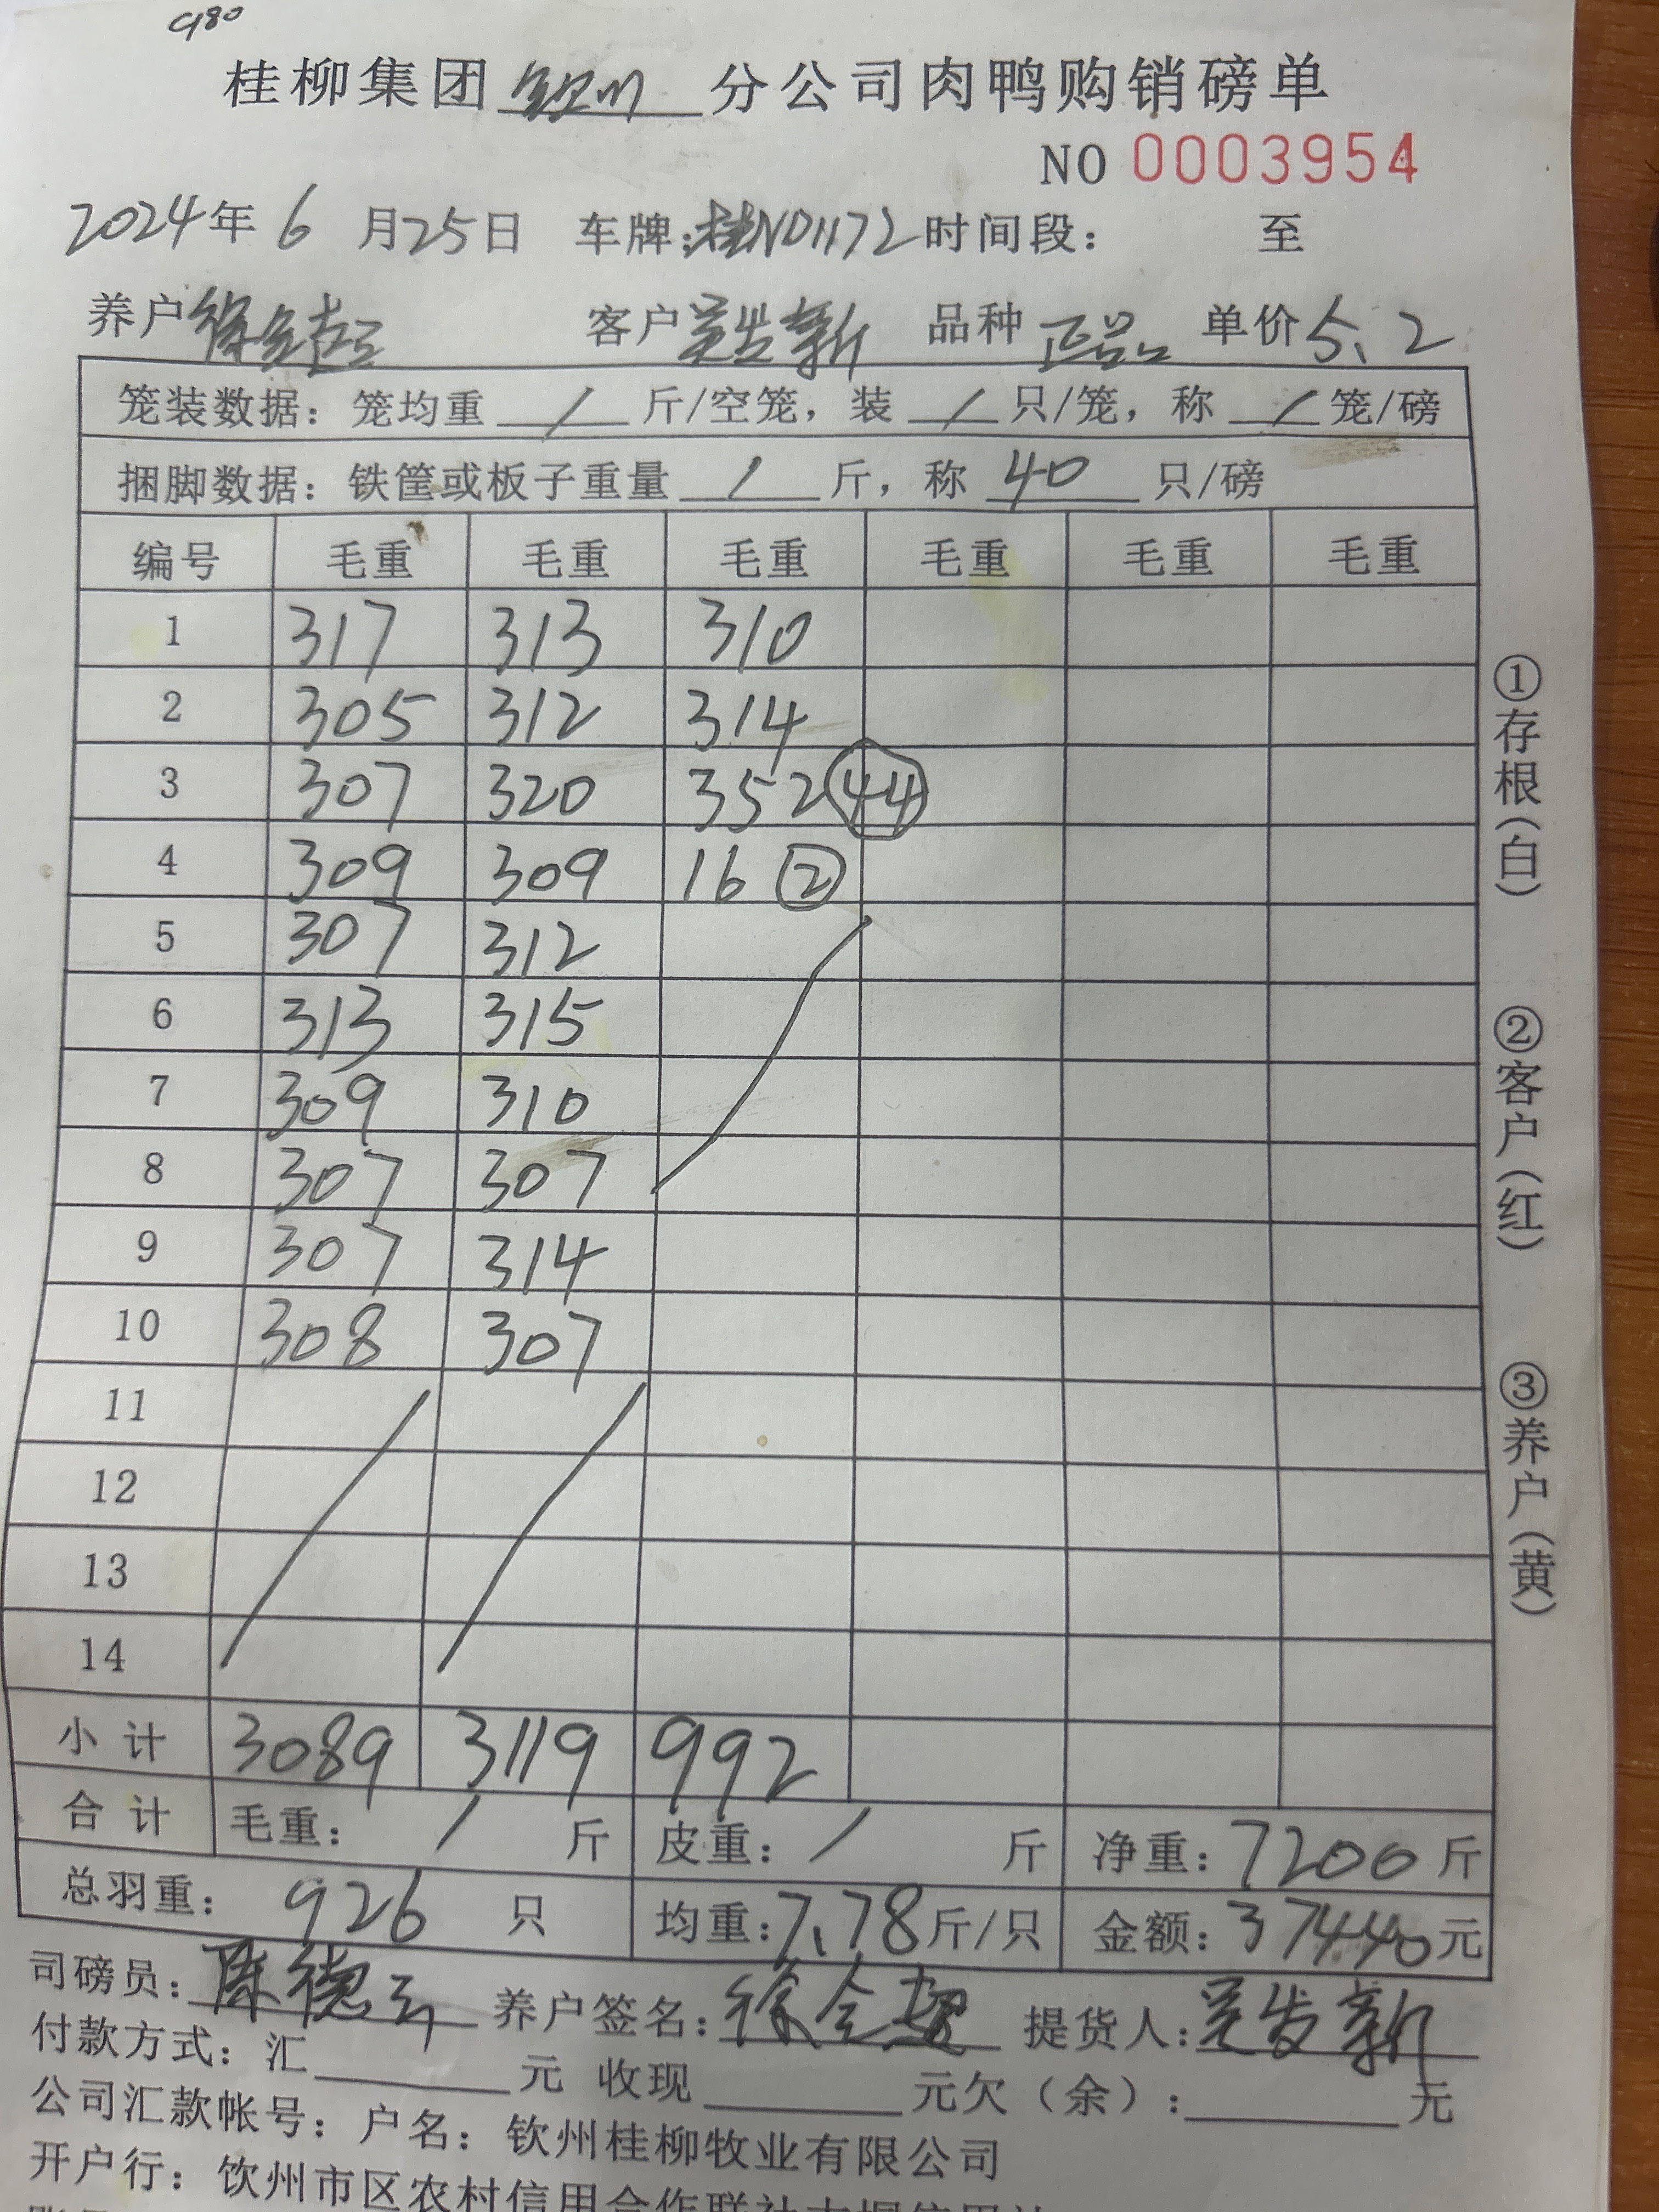 980
桂柳集团 钦州 分公司肉鸭购销磅单
NO 0003954
2024年 6 月25日 车牌:桂N01172 时间段: 至
养户 徐全超 客户 吴发新 品种 正品 单价 5.2
笼装数据: 笼均重 / 斤/空笼, 装 / 只/笼, 称 / 笼/磅
捆脚数据: 铁筐或板子重量 / 斤, 称 40 只/磅
编号 毛重 毛重 毛重 毛重 毛重 毛重
1 317 313 310
2 305 312 314
3 307 320 352 44
4 309 309 16 ②
5 307 312
6 313 315
7 309 310
8 307 307
9 307 314
10 308 307
11
12
13
14
小计 3089 3119 992
合计 毛重: / 斤 皮重: / 斤 净重: 7200 斤
总羽重: 926 只 均重: 7.78 斤/只 金额: 37440 元
司磅员: 陈德云 养户签名: 徐全超 提货人: 吴发新
付款方式: 汇 元 收现 元欠(余): 元
公司汇款帐号: 户名: 钦州桂柳牧业有限公司
开户行: 钦州市区农村信用合作联社
①存根(白)
②客户(红)
③养户(黄)